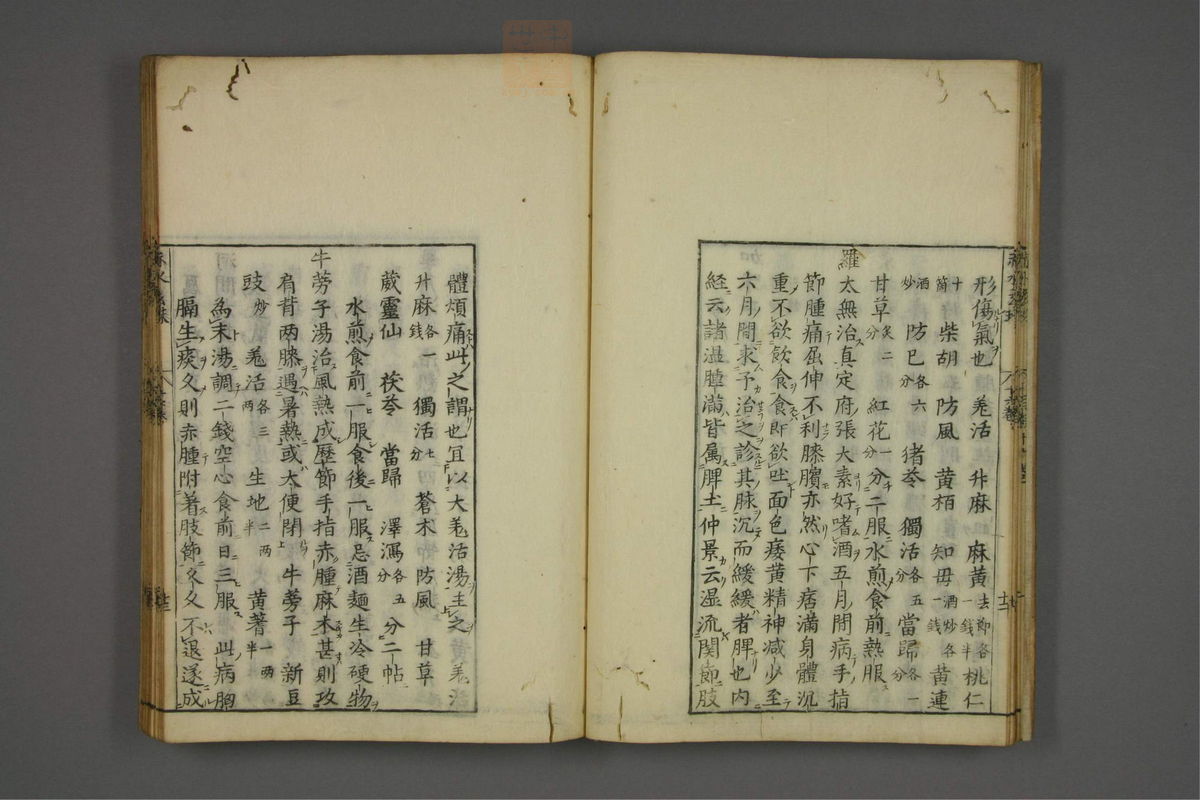 形傷氣也 羌活 升麻 麻黄去節各一錢半 桃仁
十箇 柴胡 防風 黄栢 知母酒炒各一錢 黄連
酒炒 防巳各六分 猪苓 獨活各五分 當歸各一分
甘草炙二分 紅花一分 分二服水煎食前熱服
羅太無治真定府張大素好嗜酒五月間病手指
節腫痛屈伸不利膝臏亦然心下痞滿身體沉
重不欲飲食食即欲吐面色痿黄精神减少至
六月間求予治之診其脉沉而緩緩者脾也内
経云諸湿腫滿皆属脾土仲景云湿流関節肢
體煩痛此之謂也宜以大羌活湯主之 羌活
升麻各一錢 獨活七分 蒼术 防風 甘草
葳靈仙 茯苓 當歸 澤瀉各五分 分二帖
水煎食前一服食後一服忌酒麺生冷硬物
牛蒡子湯治風熱成歷節手指赤腫麻木甚則攻
肩背两膝遇暑熱或大便閉 牛蒡子 新豆
豉炒 羌活各三两 生地二两半 黄蓍一两半
為末湯調二錢空心食前日三服 此病胸
膈生痰久則赤腫附著肢節久久不退遂成